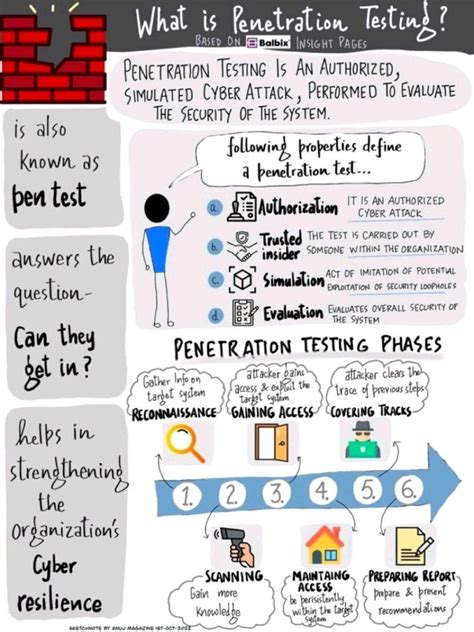 What is Penetration Testing?
BASED ON Balbix INSIGHT PAGES
PENETRATION TESTING IS AN AUTHORIZED,
SIMULATED CYBER ATTACK, PERFORMED TO EVALUATE
THE SECURITY OF THE SYSTEM.
is also
known as
pen test
answers the
question-
Can they
get in?
helps in
strengthening
the
organization's
Cyber
resilience
following properties define
a penetration test...
a. Authorization IT IS AN AUTHORIZED
CYBER ATTACK
b. Trusted insider THE TEST IS CARRIED OUT BY
SOMEONE WITHIN THE ORGANIZATION
c. Simulation ACT OF IMITATION OF POTENTIAL
EXPLOITATION OF SECURITY LOOPHOLES
d. Evaluation EVALUATES OVERALL SECURITY OF
THE SYSTEM
PENETRATION TESTING PHASES
Gather Info on
target system
RECONNAISSANCE
attacker gains
access & exploit the
target system
GAINING ACCESS
attacker clears the
trace of previous steps
COVERING TRACKS
1. 2. 3. 4. 5. 6.
SCANNING
Gain more
Knowledge
MAINTAING
ACCESS
be persistently
within the target
system
PREPARING REPORT
prepare & present
recommendations
SKETCHNOTE BY ANUJ MAGAZINE 1ST-OCT-2022